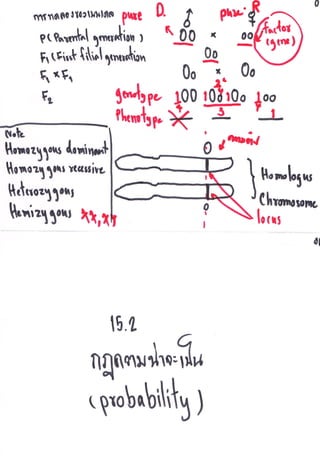 pure D. ♂ pure R ♀
P (Parental generation) OO × oo Factor (gene)
F₁ (First filial generation Oo
F₁ × F₁ Oo × Oo
F₂ genotype 1OO 2Oo 1oo
Phenotype 3 1
Note
Homozygous dominant
Homozygous recessive
Heterozygous
Hemizygous XX, XY
Homologus
Chromosome
locus
15.2
กฎความน่าจะเป็น
(probability)